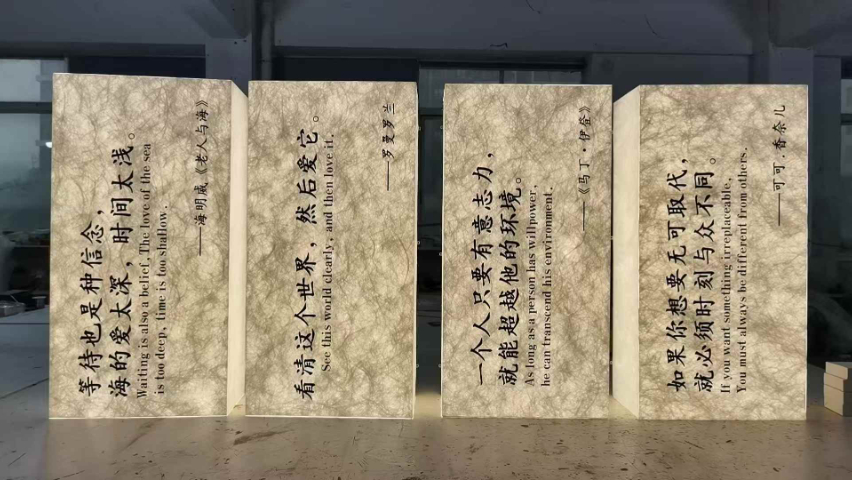 等待也是种信念，
海的爱太深，时间太浅。
Waiting is also a belief, The love of the sea
is too deep, time is too shallow.
——海明威《老人与海》
看清这个世界，然后爱它。
See this world clearly, and then love it.
——罗曼罗兰
一个人只要有意志力，
就能超越他的环境。
As long as a person has willpower,
he can transcend his environment.
——《马丁·伊登》
如果你想要无可取代，
就必须时刻与众不同。
If you want something irreplaceable,
You must always be different from others.
——可可.香奈儿